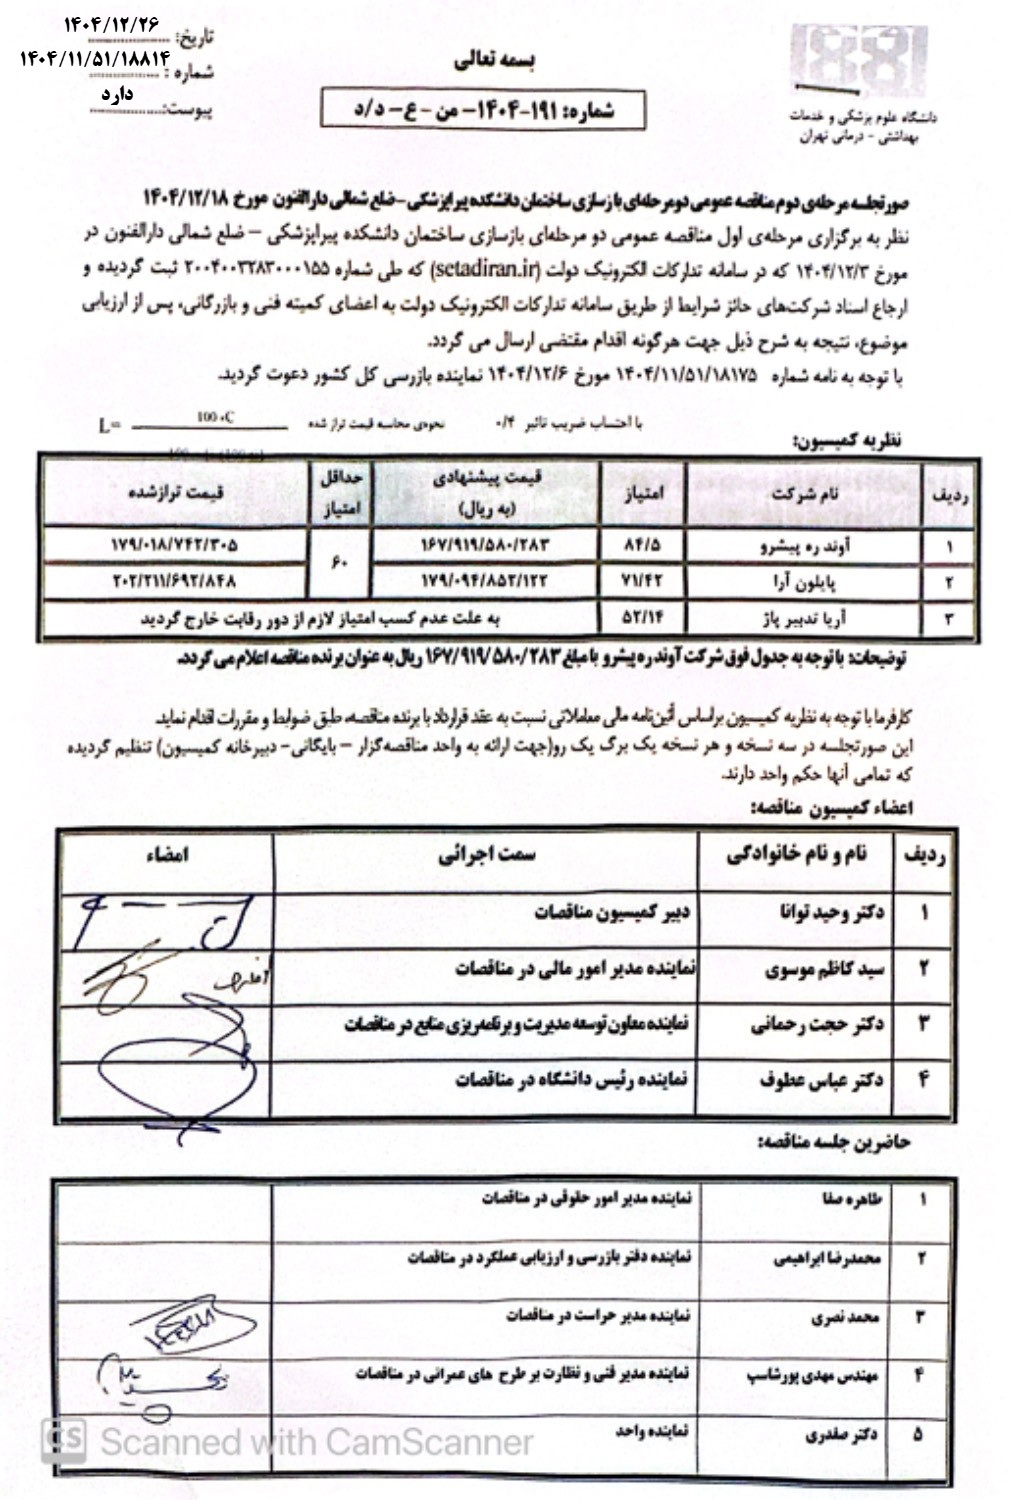 تاریخ: ۱۴۰۴/۱۲/۲۶
شماره: ۱۴۰۴/۱۱/۵۱/۱۸۸۱۴
پیوست: دارد
بسمه تعالی
شماره: ۱۹۱-۱۴۰۴- من - ع- د/د
دانشگاه علوم پزشکی و خدمات
بهداشتی - درمانی تهران
صورتجلسه مرحله‌ی دوم مناقصه عمومی دومرحله‌ای بازسازی ساختمان دانشکده پیراپزشکی - ضلع شمالی دارالفنون مورخ ۱۴۰۴/۱۲/۱۸
نظر به برگزاری مرحله‌ی اول مناقصه عمومی دو مرحله‌ای بازسازی ساختمان دانشکده پیراپزشکی – ضلع شمالی دارالفنون در
مورخ ۱۴۰۴/۱۲/۳ که در سامانه تدارکات الکترونیک دولت (setadiran.ir) که طی شماره ۲۰۰۴۰۰۳۲۸۳۰۰۰۱۵۵ ثبت گردیده و
ارجاع اسناد شرکت‌های حائز شرایط از طریق سامانه تدارکات الکترونیک دولت به اعضای کمیته فنی و بازرگانی، پس از ارزیابی
موضوع، نتیجه به شرح ذیل جهت هرگونه اقدام مقتضی ارسال می گردد.
با توجه به نامه شماره ۱۴۰۴/۱۱/۵۱/۱۸۱۷۵ مورخ ۱۴۰۴/۱۲/۶ نماینده بازرسی کل کشور دعوت گردید.
با احتساب ضریب تاثیر ۰/۴ نحوه‌ی محاسبه قیمت تراز شده L= 100×C
نظریه کمیسیون:
ردیف نام شرکت امتیاز قیمت پیشنهادی (به ریال) حداقل امتیاز قیمت ترازشده
۱ آوند ره پیشرو ۸۴/۵ ۱۶۷/۹۱۹/۵۸۰/۲۸۳ ۶۰ ۱۷۹/۰۱۸/۷۴۲/۳۰۵
۲ پایلون آرا ۷۱/۴۲ ۱۷۹/۰۹۴/۸۵۲/۱۲۲ ۲۰۲/۲۱۱/۶۹۲/۸۴۸
۳ آریا تدبیر پاژ ۵۲/۱۴ به علت عدم کسب امتیاز لازم از دور رقابت خارج گردید
توضیحات: با توجه به جدول فوق شرکت آوند ره پیشرو با مبلغ ۱۶۷/۹۱۹/۵۸۰/۲۸۳ ریال به عنوان برنده مناقصه اعلام می گردد.
کارفرما با توجه به نظریه کمیسیون براساس آئین‌نامه مالی معاملاتی نسبت به عقد قرارداد با برنده مناقصه، طبق ضوابط و مقررات اقدام نماید.
این صورتجلسه در سه نسخه و هر نسخه یک برگ یک رو(جهت ارائه به واحد مناقصه‌گزار – بایگانی- دبیرخانه کمیسیون) تنظیم گردیده
که تمامی آنها حکم واحد دارند.
اعضاء کمیسیون مناقصه:
ردیف نام و نام خانوادگی سمت اجرائی امضاء
۱ دکتر وحید توانا دبیر کمیسیون مناقصات
۲ سید کاظم موسوی نماینده مدیر امور مالی در مناقصات
۳ دکتر حجت رحمانی نماینده معاون توسعه مدیریت و برنامه‌ریزی منابع در مناقصات
۴ دکتر عباس عطوف نماینده رئیس دانشگاه در مناقصات
حاضرین جلسه مناقصه:
۱ طاهره صفا نماینده مدیر امور حقوقی در مناقصات
۲ محمدرضا ابراهیمی نماینده دفتر بازرسی و ارزیابی عملکرد در مناقصات
۳ محمد نصری نماینده مدیر حراست در مناقصات
۴ مهندس مهدی پورشاسب نماینده مدیر فنی و نظارت بر طرح های عمرانی در مناقصات
۵ دکتر صفدری نماینده واحد
CS Scanned with CamScanner